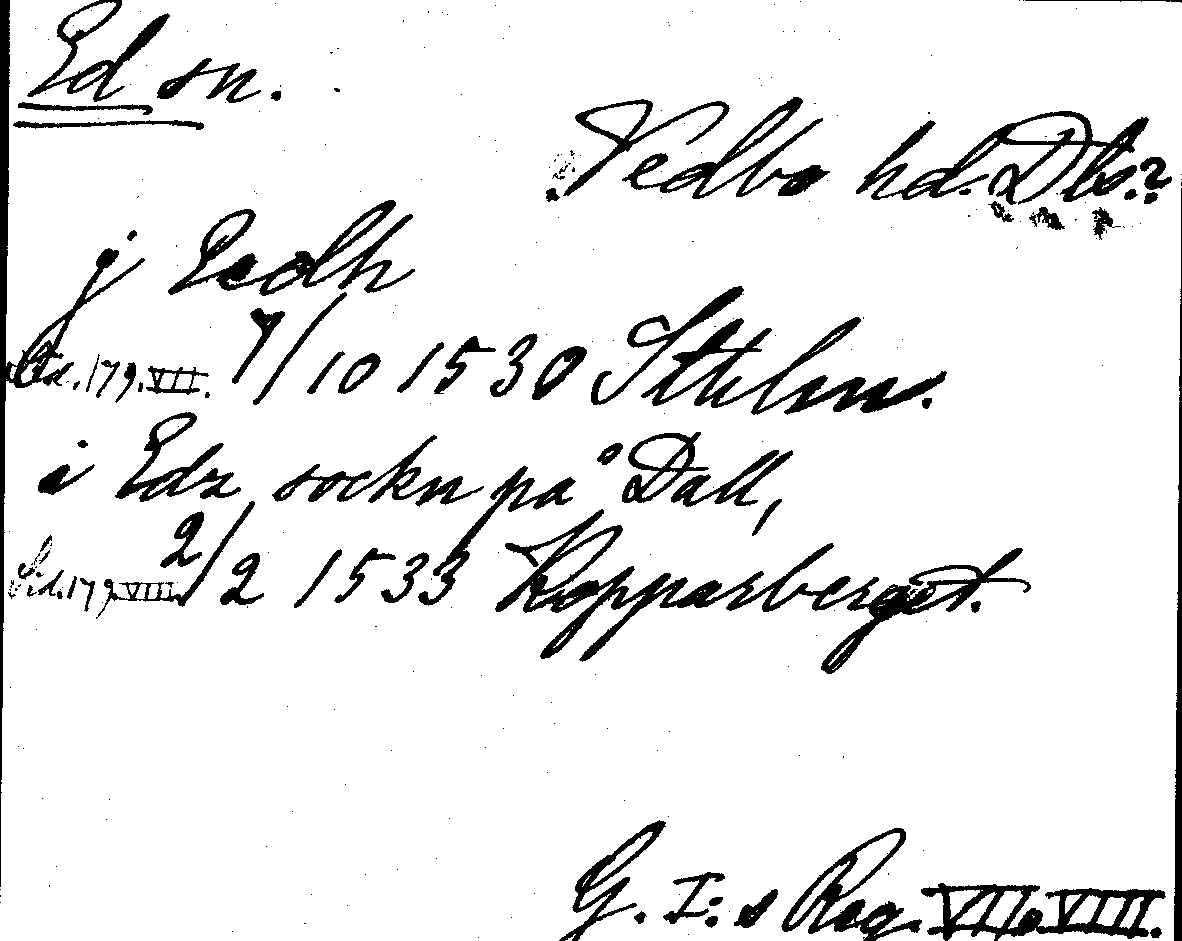 Ed sn.
Vedbo hd. Dls.?
j Eedh
Sid. 179. VII. 7/10 1530 Sthlm.
i Edz sockn på Dall,
Sid. 179. VIII. 2/2 1533 Kopparberget.
G. I:s Reg. VII o VIII.